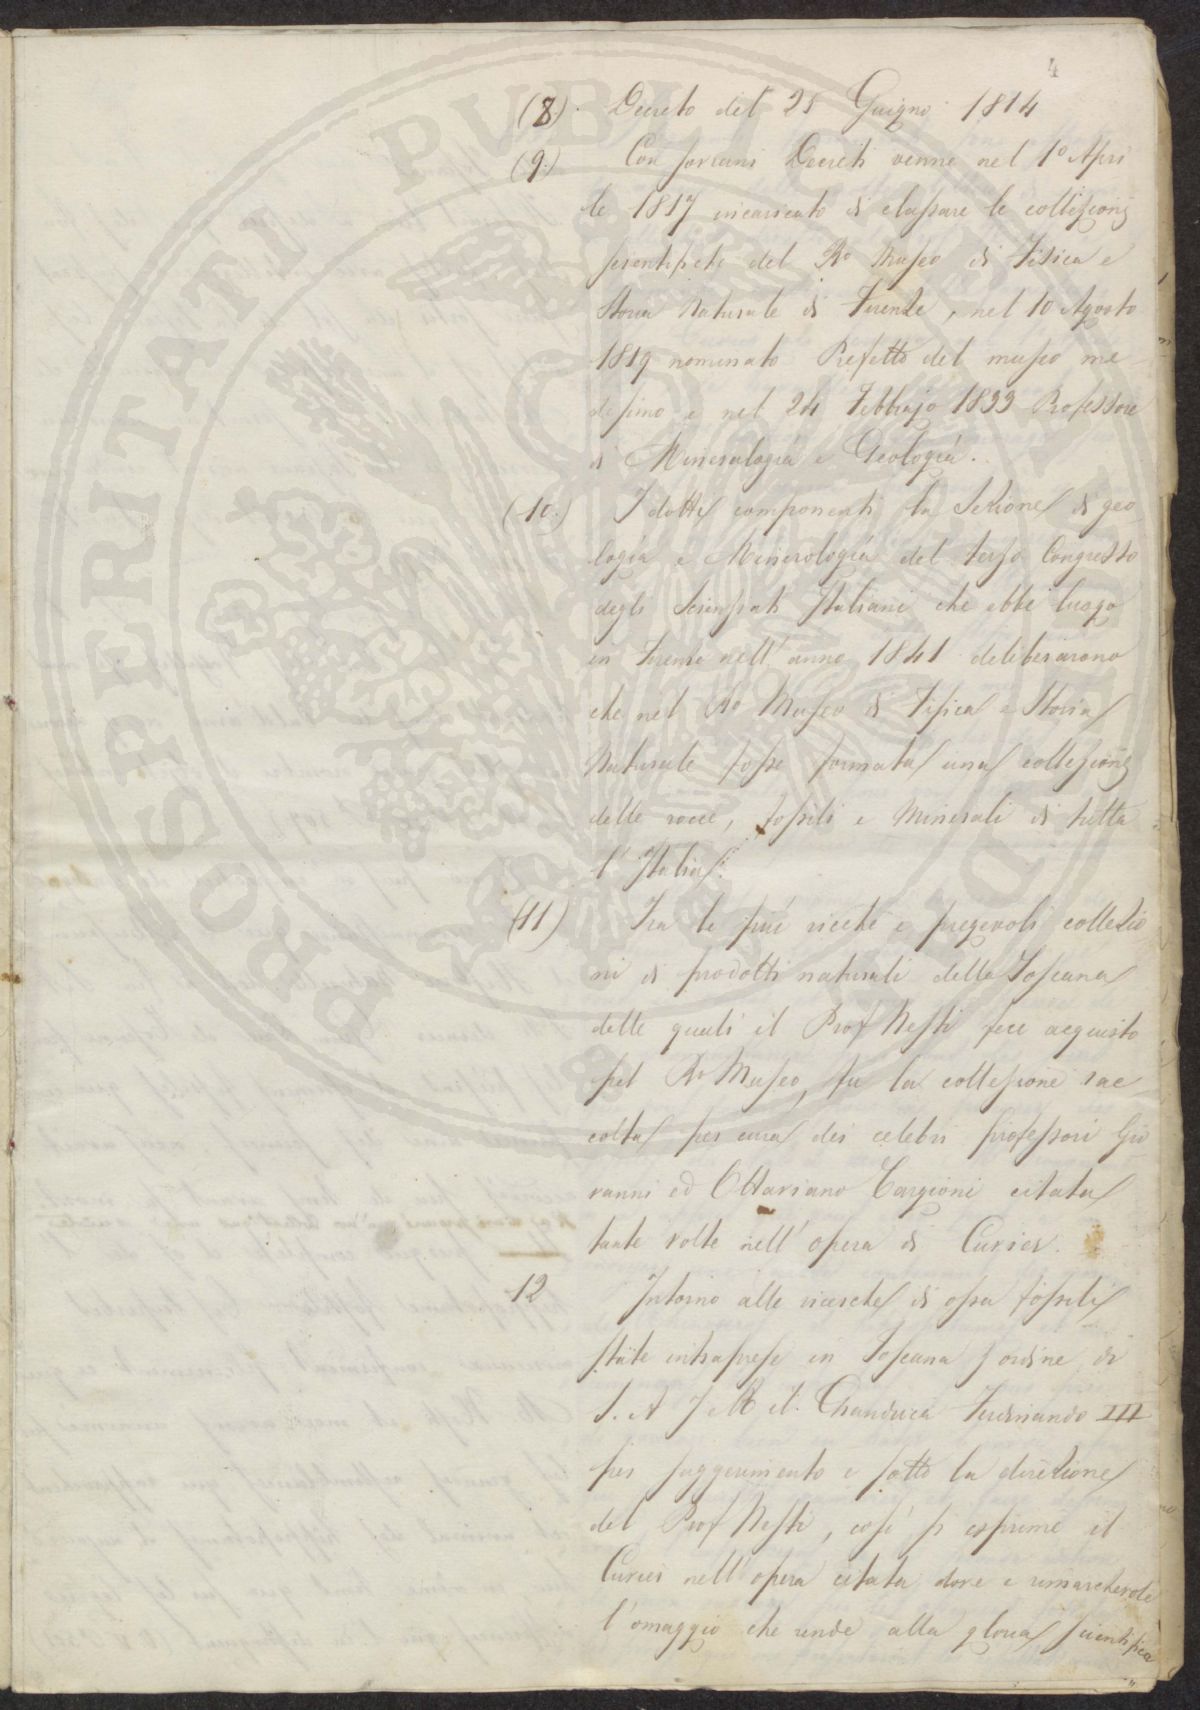 4
(8.) Decreto del 25 Giugno 1814
(9.) Con sovrani Decreti venne nel 1º Apri
le 1817 incaricato di classare le collezioni
scientifiche del Rº Museo di Fisica e
Storia Naturale di Firenze, nel 10 Agosto
1819 nominato Prefetto del museo me
desimo e nel 24 Febbrajo 1833 Professore
di Mineralogia e Geologia.
(10.) I dotti componenti la Sezione di geo
logia e Minerologia del terzo Congresso
degli Scienziati Italiani che ebbe luogo
in Firenze nell' anno 1841 deliberarono
che nel Rº Museo di Fisica e Storia
Naturale fosse formata una collezione
delle rocce, fossili e Minerali di tutta
l' Italia.
(11) Fra le piú ricche e pregevoli collezio
ni di prodotti naturali della Toscana
delle quali il Prof Nesti fece acquisto
pel Rº Museo, fu la collezione rac
colta per cura dei celebri professori Gio
vanni ed Ottaviano Targioni citata
tante volte nell' opera di Cuvier.
12 Intorno alle ricerche di ossa fossili
state intraprese in Toscana ordine di
S. A I e R il Granduca Ferdinando III
per suggerimento e sotto la direzione
del Prof Nesti, cosí si esprime il
Cuvier nell' opera citata dove e rimarchevole
l' omaggio che rende alla gloria scientifica
PROSPERITATI PUBLICAE